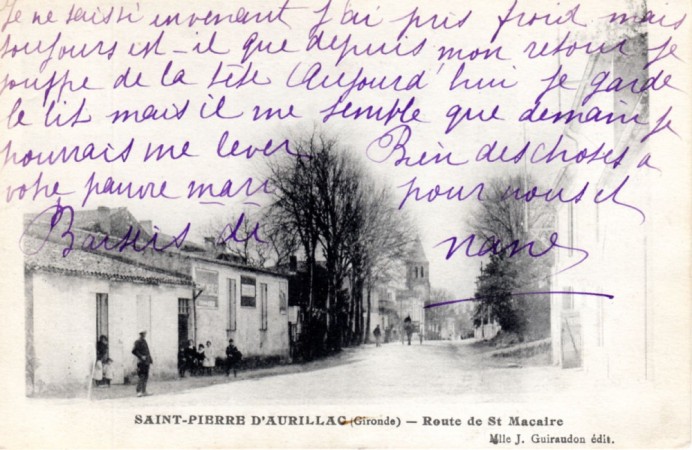 Je ne sais si en venant j'ai pris froid mais
toujours est-il que depuis mon retour je
souffre de la tête Aujourd'hui je garde
le lit mais il me semble que demain je
pourrais me lever Bien des choses a
votre pauvre mari pour vous et
Baisers de nane
SAINT-PIERRE D'AURILLAC (Gironde) — Route de St Macaire
Mlle J. Guiraudon édit.